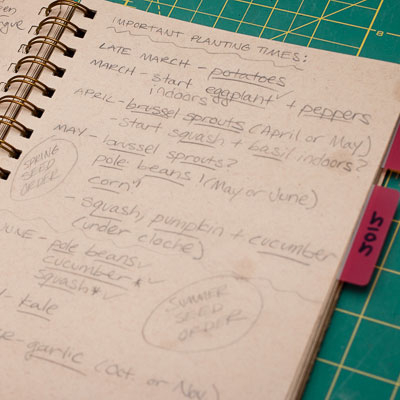 IMPORTANT PLANTING TIMES:
LATE MARCH - potatoes
MARCH - start eggplant + peppers
indoors
APRIL - brussel sprouts (April or May)
- start squash + basil indoors?
MAY - brussel sprouts?
pole beans (May or June)
corn
- squash, pumpkin + cucumber
(under cloche)
SPRING
SEED
ORDER
JUNE - pole beans ✓
cucumber * ✓
squash * ✓
- kale
SUMMER
SEED
ORDER
- garlic (Oct. or Nov.)
2015